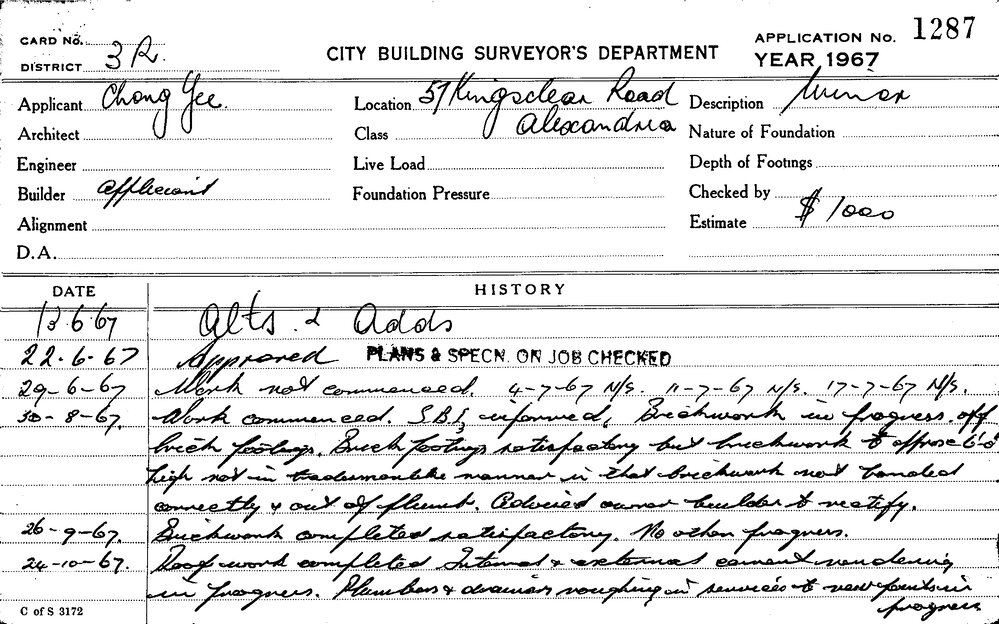 CARD No.
DISTRICT 3 R.
CITY BUILDING SURVEYOR'S DEPARTMENT
APPLICATION No. 1287
YEAR 1967
Applicant Chong Yee.
Location 57 Kingsclear Road
Alexandria
Description Minor
Architect
Class
Nature of Foundation
Engineer
Live Load
Depth of Footings
Builder applicant
Foundation Pressure
Checked by
Alignment
Estimate $ 1000
D.A.
DATE HISTORY
13.6.67 Alts. & Adds
22.6.67 Approved PLANS & SPECN. ON JOB CHECKED
29-6-67 Work not commenced. 4-7-67 N/S. 11-7-67 N/S. 17-7-67 N/S.
30-8-67. Work commenced. S.B.I. informed. Brickwork in progress. off
brick footings. Brick footings satisfactory but brickwork to approx 6'0
high not in tradesmanlike manner in that brickwork not bonded
correctly & out of plumb. Advised owner builder to rectify.
26-9-67. Brickwork completed satisfactory. No other progress.
24-10-67. Roof work completed Internal & external cement rendering
in progress. Plumbers & drainers roughing in services to new points in
progress
C of S 3172